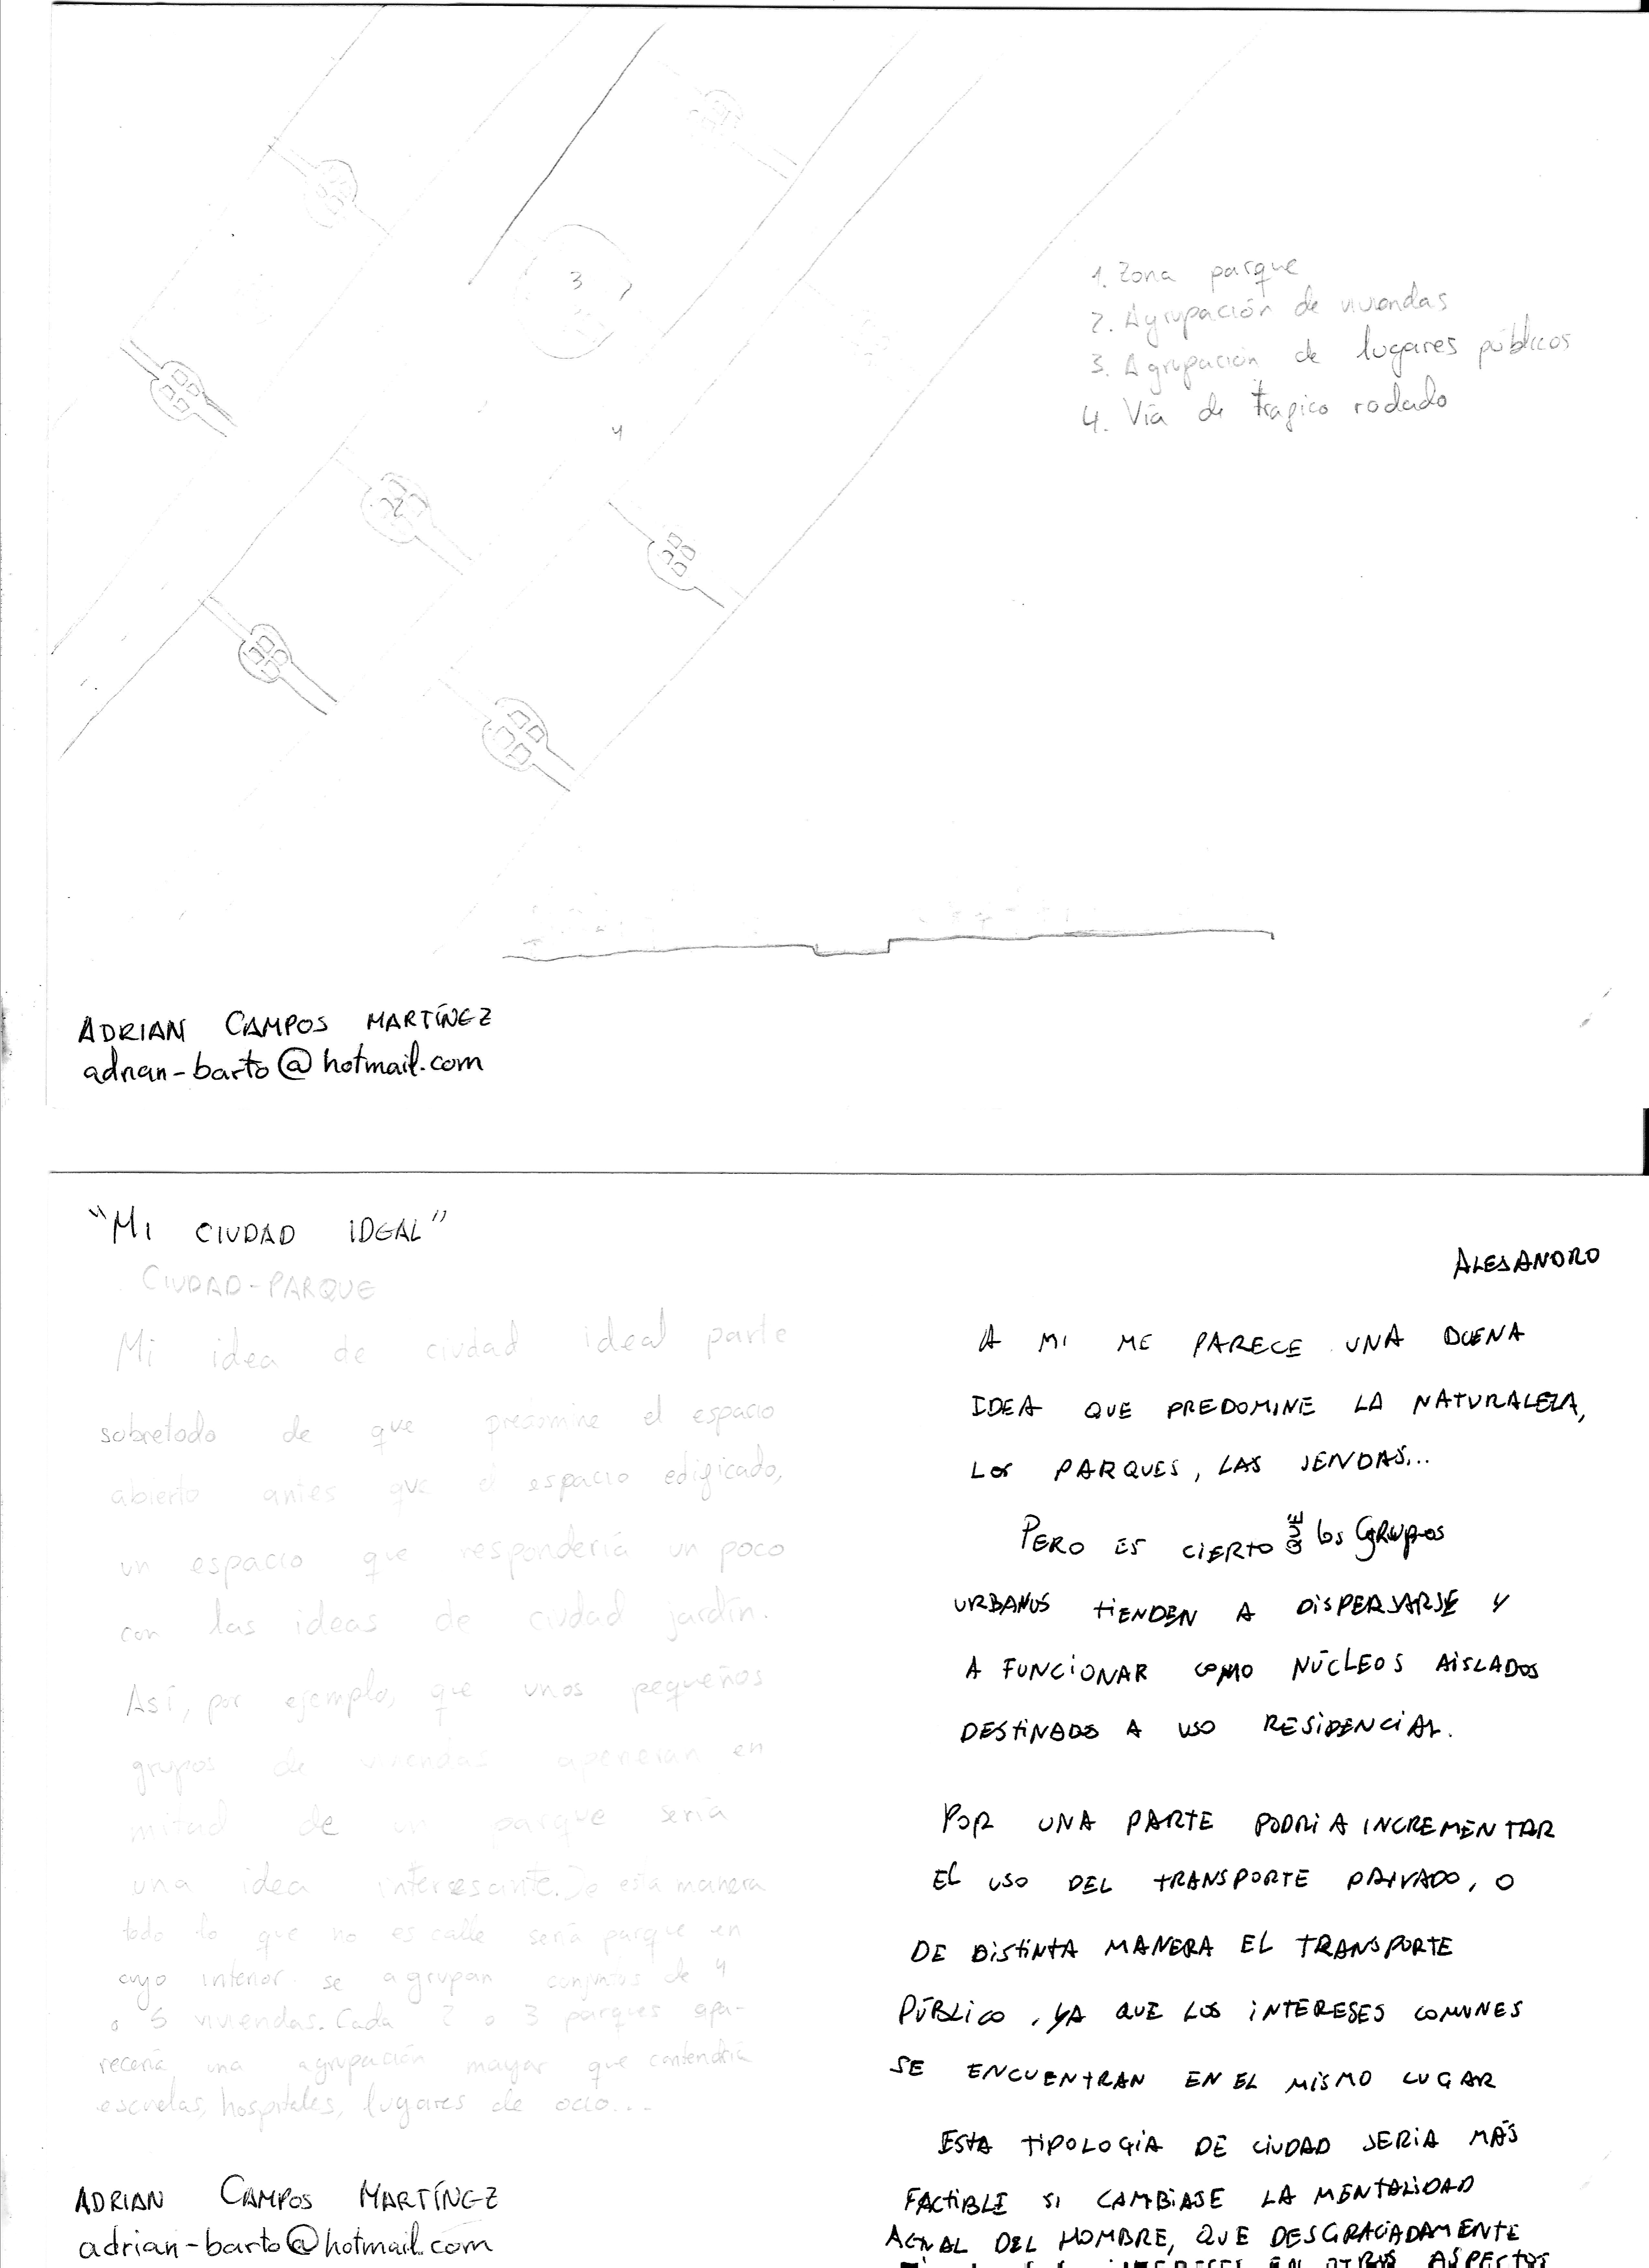 3
1. Zona parque
2. Agrupación de viviendas
3. Agrupación de lugares públicos
4. Vía de trafico rodado
4
2
ADRIAN CAMPOS MARTÍNEZ
adrian-barto@hotmail.com
"MI CIUDAD IDEAL"
CIUDAD-PARQUE
Mi idea de ciudad ideal parte
sobretodo de que predomine el espacio
abierto antes que el espacio edificado,
un espacio que respondería un poco
con las ideas de ciudad jardín.
Así, por ejemplo, que unos pequeños
grupos de viviendas en
mitad de un parque sería
una idea interesante. De esta manera
todo lo que no es calle sería parque en
cuyo interior se agrupan conjuntos de 4
o 5 viviendas. Cada 2 o 3 parques apa-
recería una agrupación mayor que contendría
escuelas, hospitales, lugares de ocio...
ADRIAN CAMPOS MARTÍNEZ
adrian-barto@hotmail.com
ALEJANDRO
A MI ME PARECE UNA BUENA
IDEA QUE PREDOMINE LA NATURALEZA,
LOS PARQUES, LAS SENDAS...
PERO ES CIERTO QUE los GRUPOS
URBANOS TIENDEN A DISPERSARSE Y
A FUNCIONAR COMO NÚCLEOS AISLADOS
DESTINADOS A USO RESIDENCIAL.
POR UNA PARTE PODRIA INCREMENTAR
EL USO DEL TRANSPORTE PRIVADO, O
DE DISTINTA MANERA EL TRANSPORTE
PÚBLICO, YA QUE LOS INTERESES COMUNES
SE ENCUENTRAN EN EL MISMO LUGAR
ESTA TIPOLOGIA DE CIUDAD SERIA MÁS
FACTIBLE SI CAMBIASE LA MENTALIDAD
ACTUAL DEL HOMBRE, QUE DESGRACIADAMENTE
INTERESES EN OTROS ASPECTOS